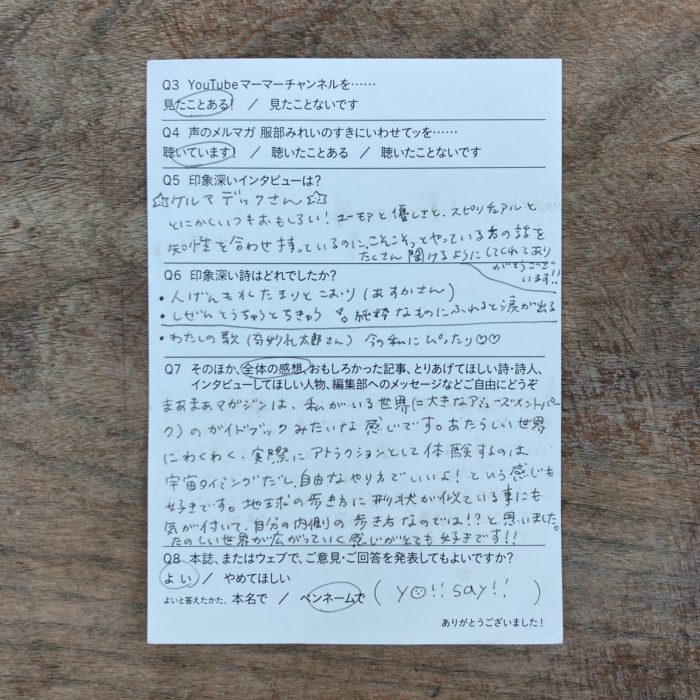 Q3 YouTubeマーマーチャンネルを……
見たことある! / 見たことないです
Q4 声のメルマガ 服部みれいのすきにいわせてッを……
聴いています! / 聴いたことある / 聴いたことないです
Q5 印象深いインタビューは?
☆ケルマデックさん☆
とにかくいつもおもしろい! ユーモアと優しさと、スピリチュアルと
知性を合わせ持っているのに、こそこそっとやっている者の話を
たくさん聞けるようにしてくれてあり
がとうござ
います!!
Q6 印象深い詩はどれでしたか?
・人げんもれたまりとこおり (あすかさん)
・しぜんとうちゅうとちきゅう 純粋なものにふれると涙が出る
・わたしの歌 (奇妙礼太郎さん) 今の私にぴったり♡♡
Q7 そのほか、全体の感想、おもしろかった記事、とりあげてほしい詩・詩人、
インタビューしてほしい人物、編集部へのメッセージなどご自由にどうぞ
まぁまぁマガジンは、私がいる世界(=大きなアミューズメントパー
ク)のガイドブックみたいな感じです。あたらしい世界
にわくわく、実際にアトラクションとして体験するのは
宇宙タイミングだし、自由なやり方でいいよ! という感じも
好きです。地球の歩き方に形状が似ている事にも
気が付いて、自分の内側の歩き方なのでは!?と思いました。
たのしい世界が広がっていく感じがとても好きです!!
Q8 本誌、またはウェブで、ご意見・ご回答を発表してもよいですか?
よい / やめてほしい
よいと答えたかた、本名で / ペンネームで ( yo!! say!! )
ありがとうございました!